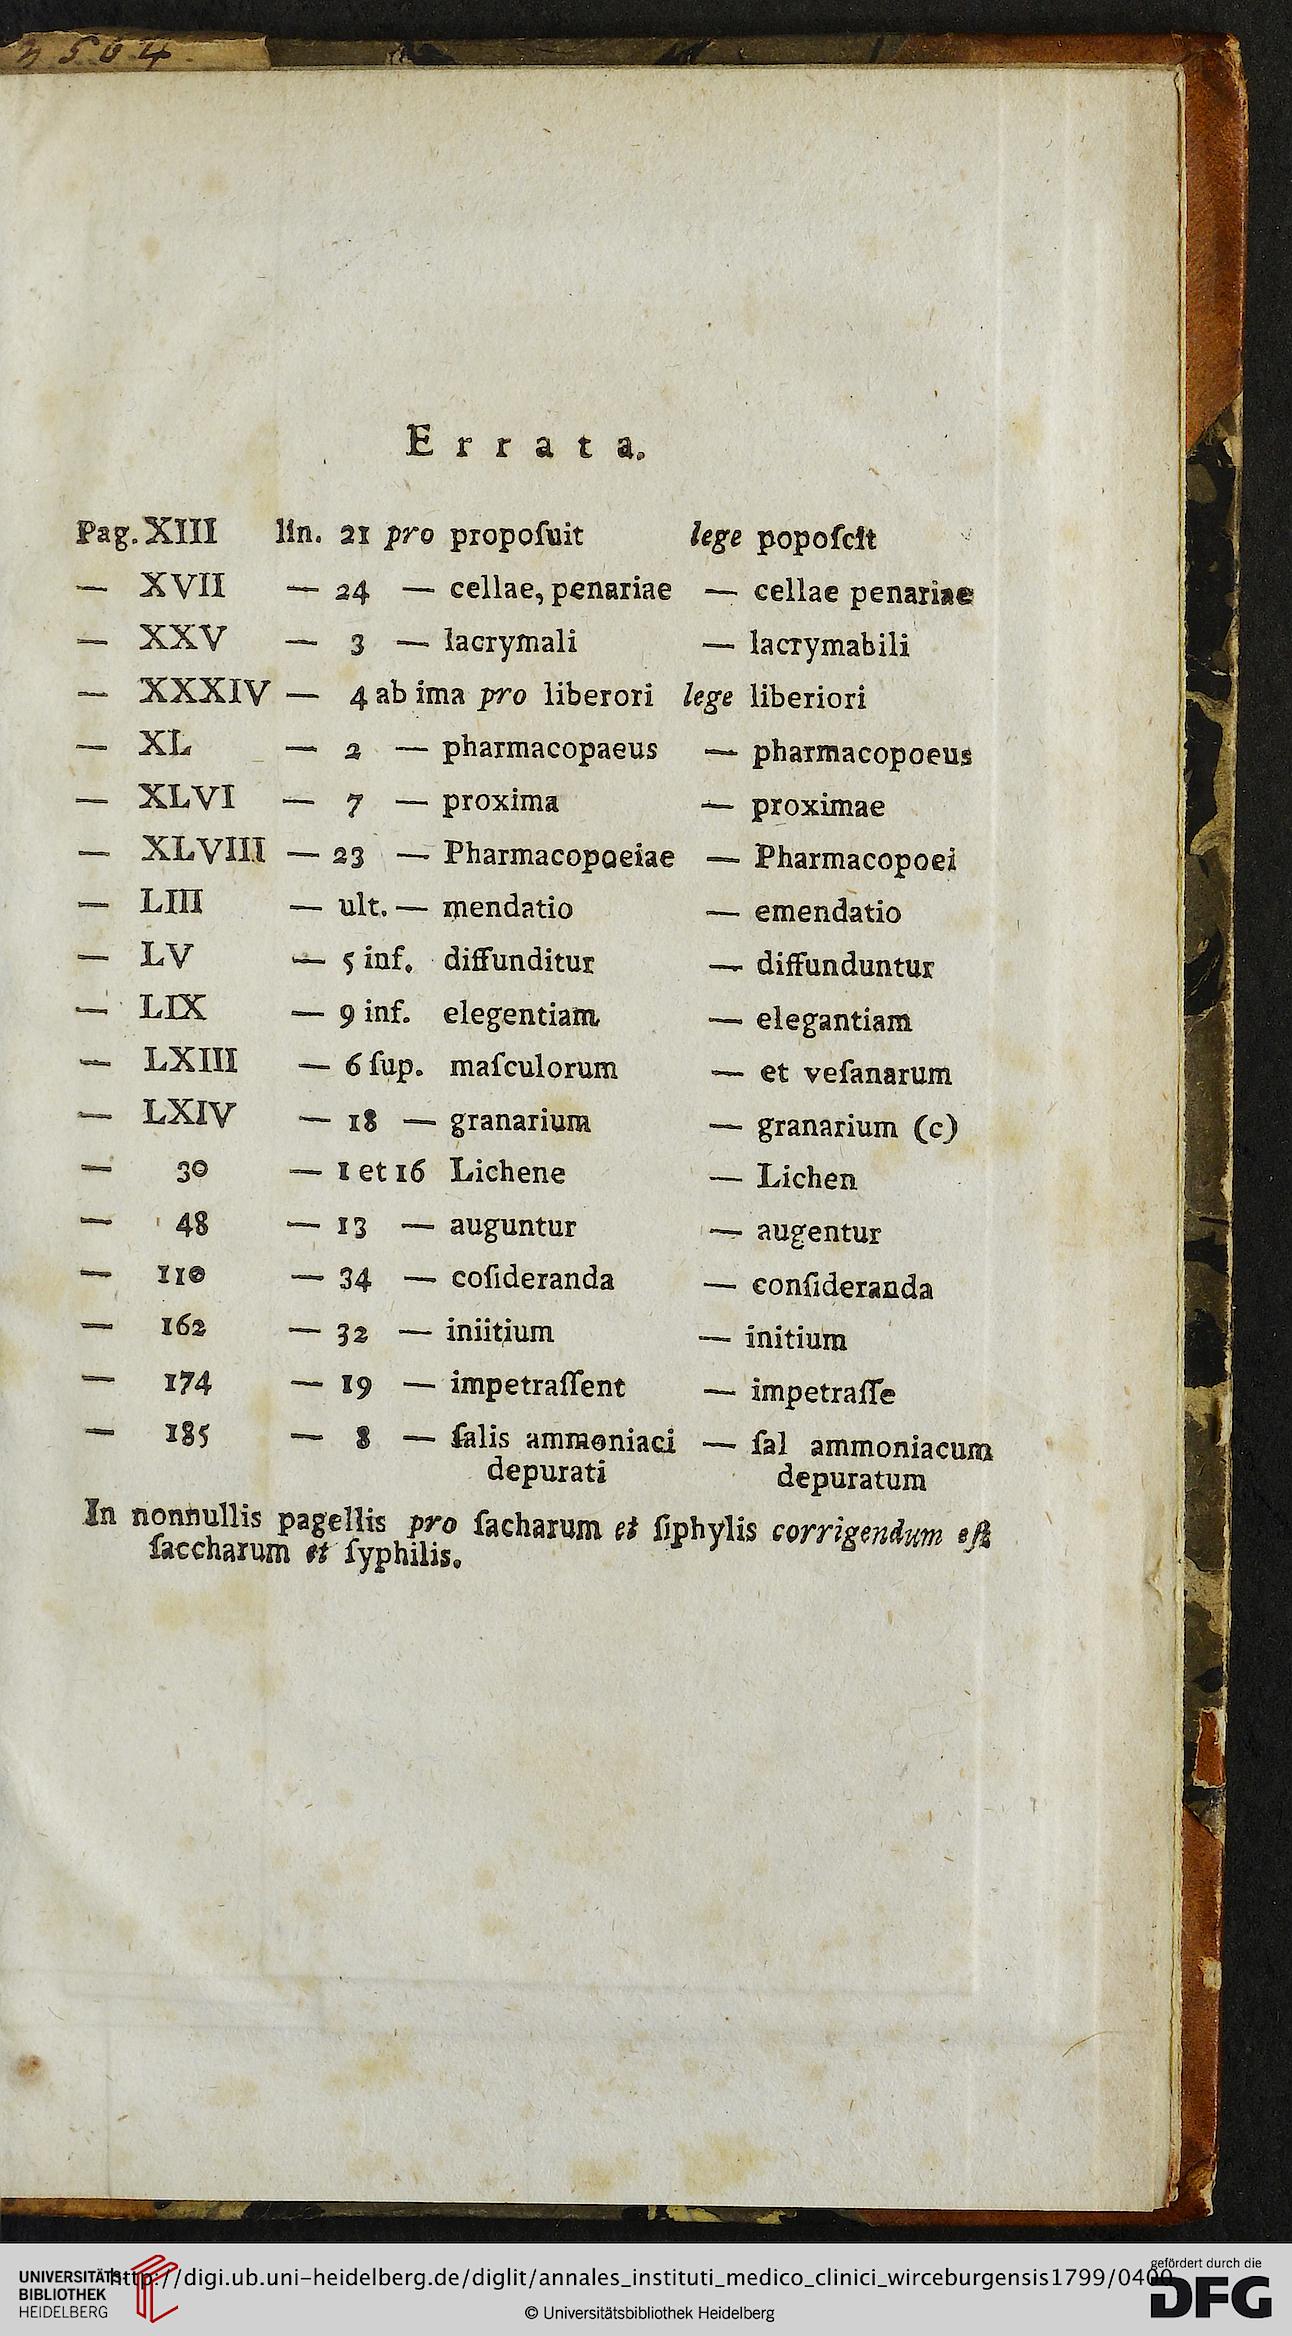 3504.
Errata.
Pag. XIII lin. 21 pro propoſuit lege popoſcit
— XVII — 24 — cellae, penariae — cellae penariae
— XXV — 3 — lacrymali — lacrymabili
— XXXIV — 4 ab ima pro liberori lege liberiori
— XL — 2 — pharmacopaeus — pharmacopoeus
— XLVI — 7 — proxima — proximae
— XLVIII — 23 — Pharmacopoeiae — Pharmacopoei
— LIII — ult. — mendatio — emendatio
— LV — 5 inf. diffunditur — diffunduntur
— LIX — 9 inf. elegentiam — elegantiam
— LXIII — 6 ſup. maſculorum — et veſanarum
— LXIV — 18 — granarium — granarium (c)
— 30 — 1 et 16 Lichene — Lichen
— 48 — 13 — auguntur — augentur
— 110 — 34 — coſideranda — conſideranda
— 162 — 32 — iniitium — initium
— 174 — 19 — impetraſſent — impetraſſe
— 185 — 8 — ſalis ammoniaci — ſal ammoniacum
depurati depuratum
In nonnullis pagellis pro ſacharum et ſiphylis corrigendum eſt
ſaccharum et ſyphilis.
UNIVERSITÄTS-
BIBLIOTHEK
HEIDELBERG
http://digi.ub.uni-heidelberg.de/diglit/annales_instituti_medico_clinici_wirceburgensis1799/0400
© Universitätsbibliothek Heidelberg
gefördert durch die
DFG